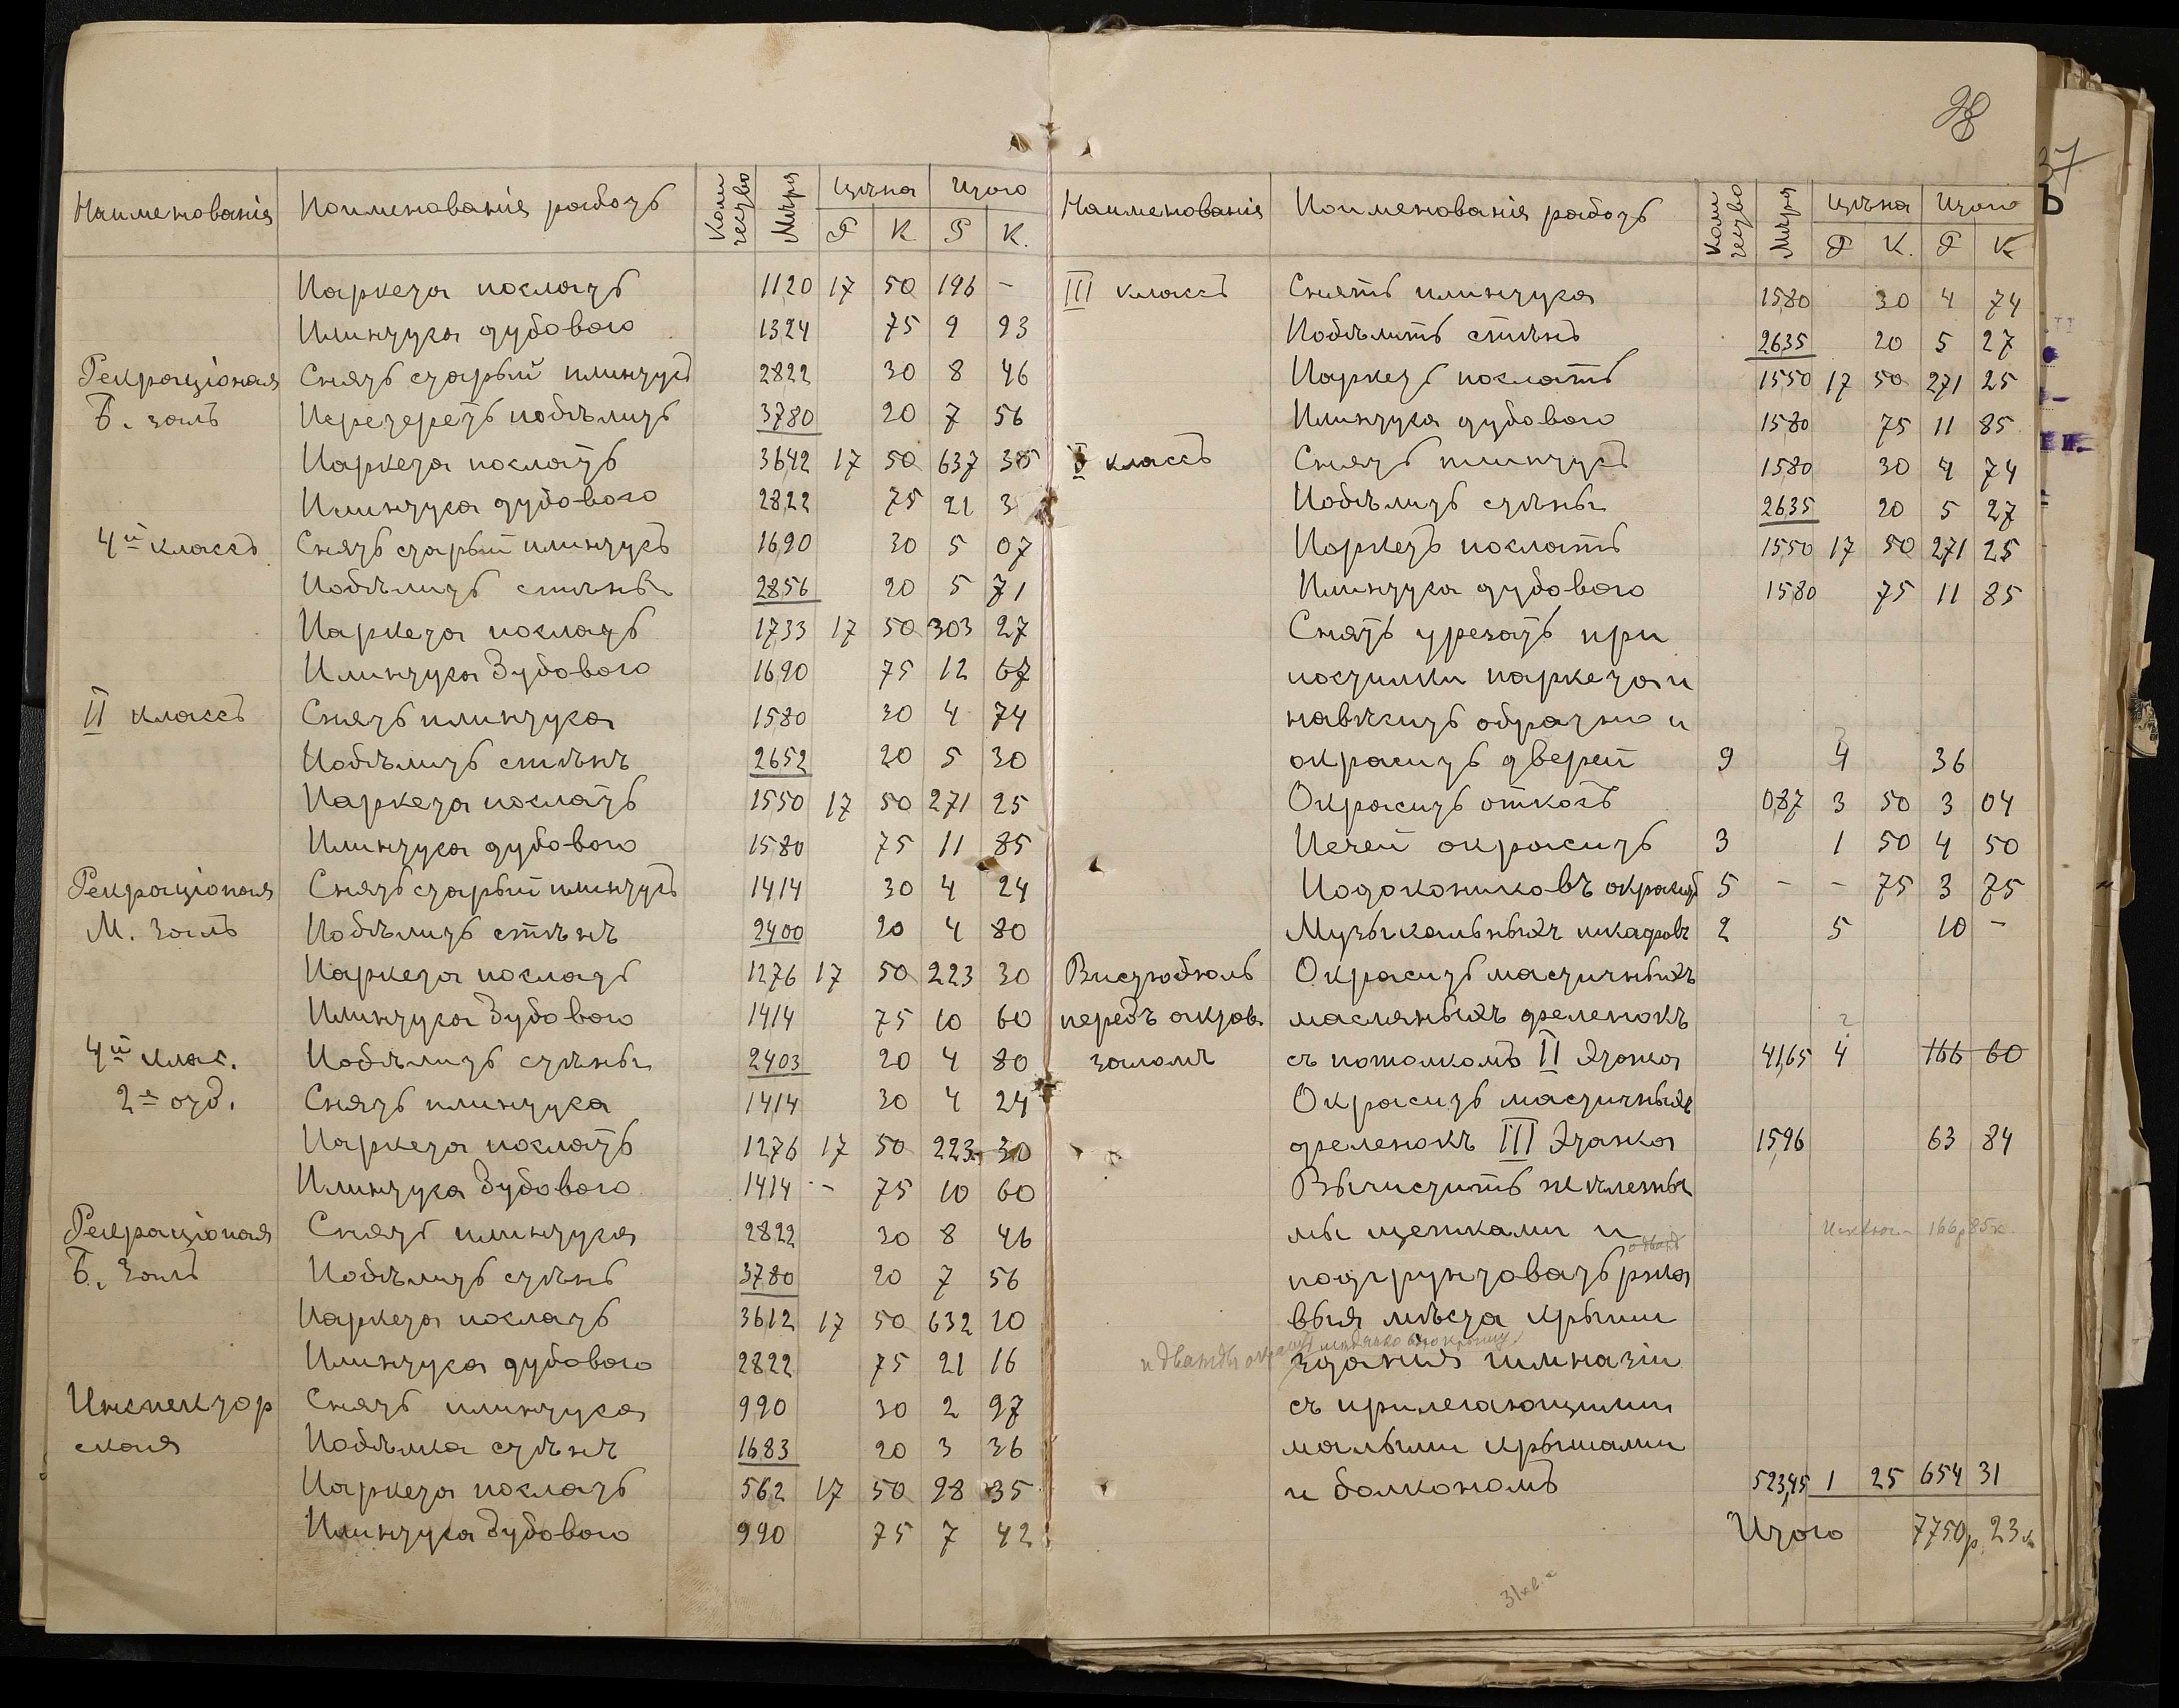 28
Наименованія Поименованія работъ Коли чество Мѣра Цѣна Итого
Р К Р К.
Паркета послать 1120 17 50 196 -
Плинтуса дубового 1324 75 9 93
Рекраціоная Снять старый плинтусъ 2822 30 8 46
Б. залъ Перетереть побѣлить 3780 20 7 56
Паркета послать 3642 17 50 637 35
Плинтуса дубового 2822 75 21
4й классъ Снять старый плинтусъ 1690 30 5 07
Побѣлить стѣны 2856 20 5 71
Паркета послать 1733 17 50 303 27
Плинтуса дубового 1690 75 12 67
II классъ Снять плинтуса 1580 30 4 74
Побѣлить стѣнъ 2652 20 5 30
Паркета послать 1550 17 50 271 25
Плинтуса дубового 1580 75 11 85
Рекраціоная Снять старый плинтусъ 1414 30 4 24
М. Залъ Побѣлить стѣнъ 2400 20 4 80
Паркета послать 1276 17 50 223 30
Плинтуса дубового 1414 75 10 60
4й клас. Побѣлить стѣны 2403 20 4 80
2е отд. Снять плинтуса 1414 30 4 24
Паркета послать 1276 17 50 223 30
Плинтуса дубового 1414 - 75 10 60
Рекраціоная Снять плинтуса 2822 30 8 46
Б. Залъ Побѣлить стѣнъ 3780 20 7 56
Паркета послать 3612 17 50 632 10
Плинтуса дубового 2822 75 21 16
Инспектор Снять плинтуса 990 30 2 97
ская Побѣлка стѣнъ 1683 20 3 36
Паркета послать 562 17 50 98 35
Плинтуса дубового 990 75 7 42
Наименованія Поименованія работъ Коли чество Мѣра Цѣна Итого
Р К. Р К
III классъ Снять плинтуса 1580 30 4 74
Побѣлить стѣнъ 2635 20 5 27
Паркетъ послать 1550 17 50 271 25
Плинтуса дубового 1580 75 11 85
классъ Снять плинтусъ 1580 30 4 74
Побѣлить стѣны 2635 20 5 27
Паркетъ послать 1550 17 50 271 25
Плинтуса дубового 1580 75 11 85
Снять урезать при
посtилки паркета и
навѣсить обратно и
окрасить дверей 9 4 36
Окрасить откосъ 0,87 3 50 3 04
Печей окрасить 3 1 50 4 50
Подокониковъ окрасить 5 - - 75 3 75
Музыкальныхъ шкафовъ 2 5 10 -
Вистюбюль Окрасить мастичныхъ
передъ актов. масляныхъ феленокъ
заломъ съ потолкомъ II Этажа 41,65 4 166 60
Окрасить мастичныхъ
феленокъ III Этажа 15,96 63 84
Вычистить желѣзны
мы щетками и 166р 85к
подгрунтовать ржа
выя мѣста крыши
зданія гимназіи
съ прилегающими
малыми крышами
и балкономъ 523,45 1 25 654 31
Итого 7750р. 23к
37
Ъ